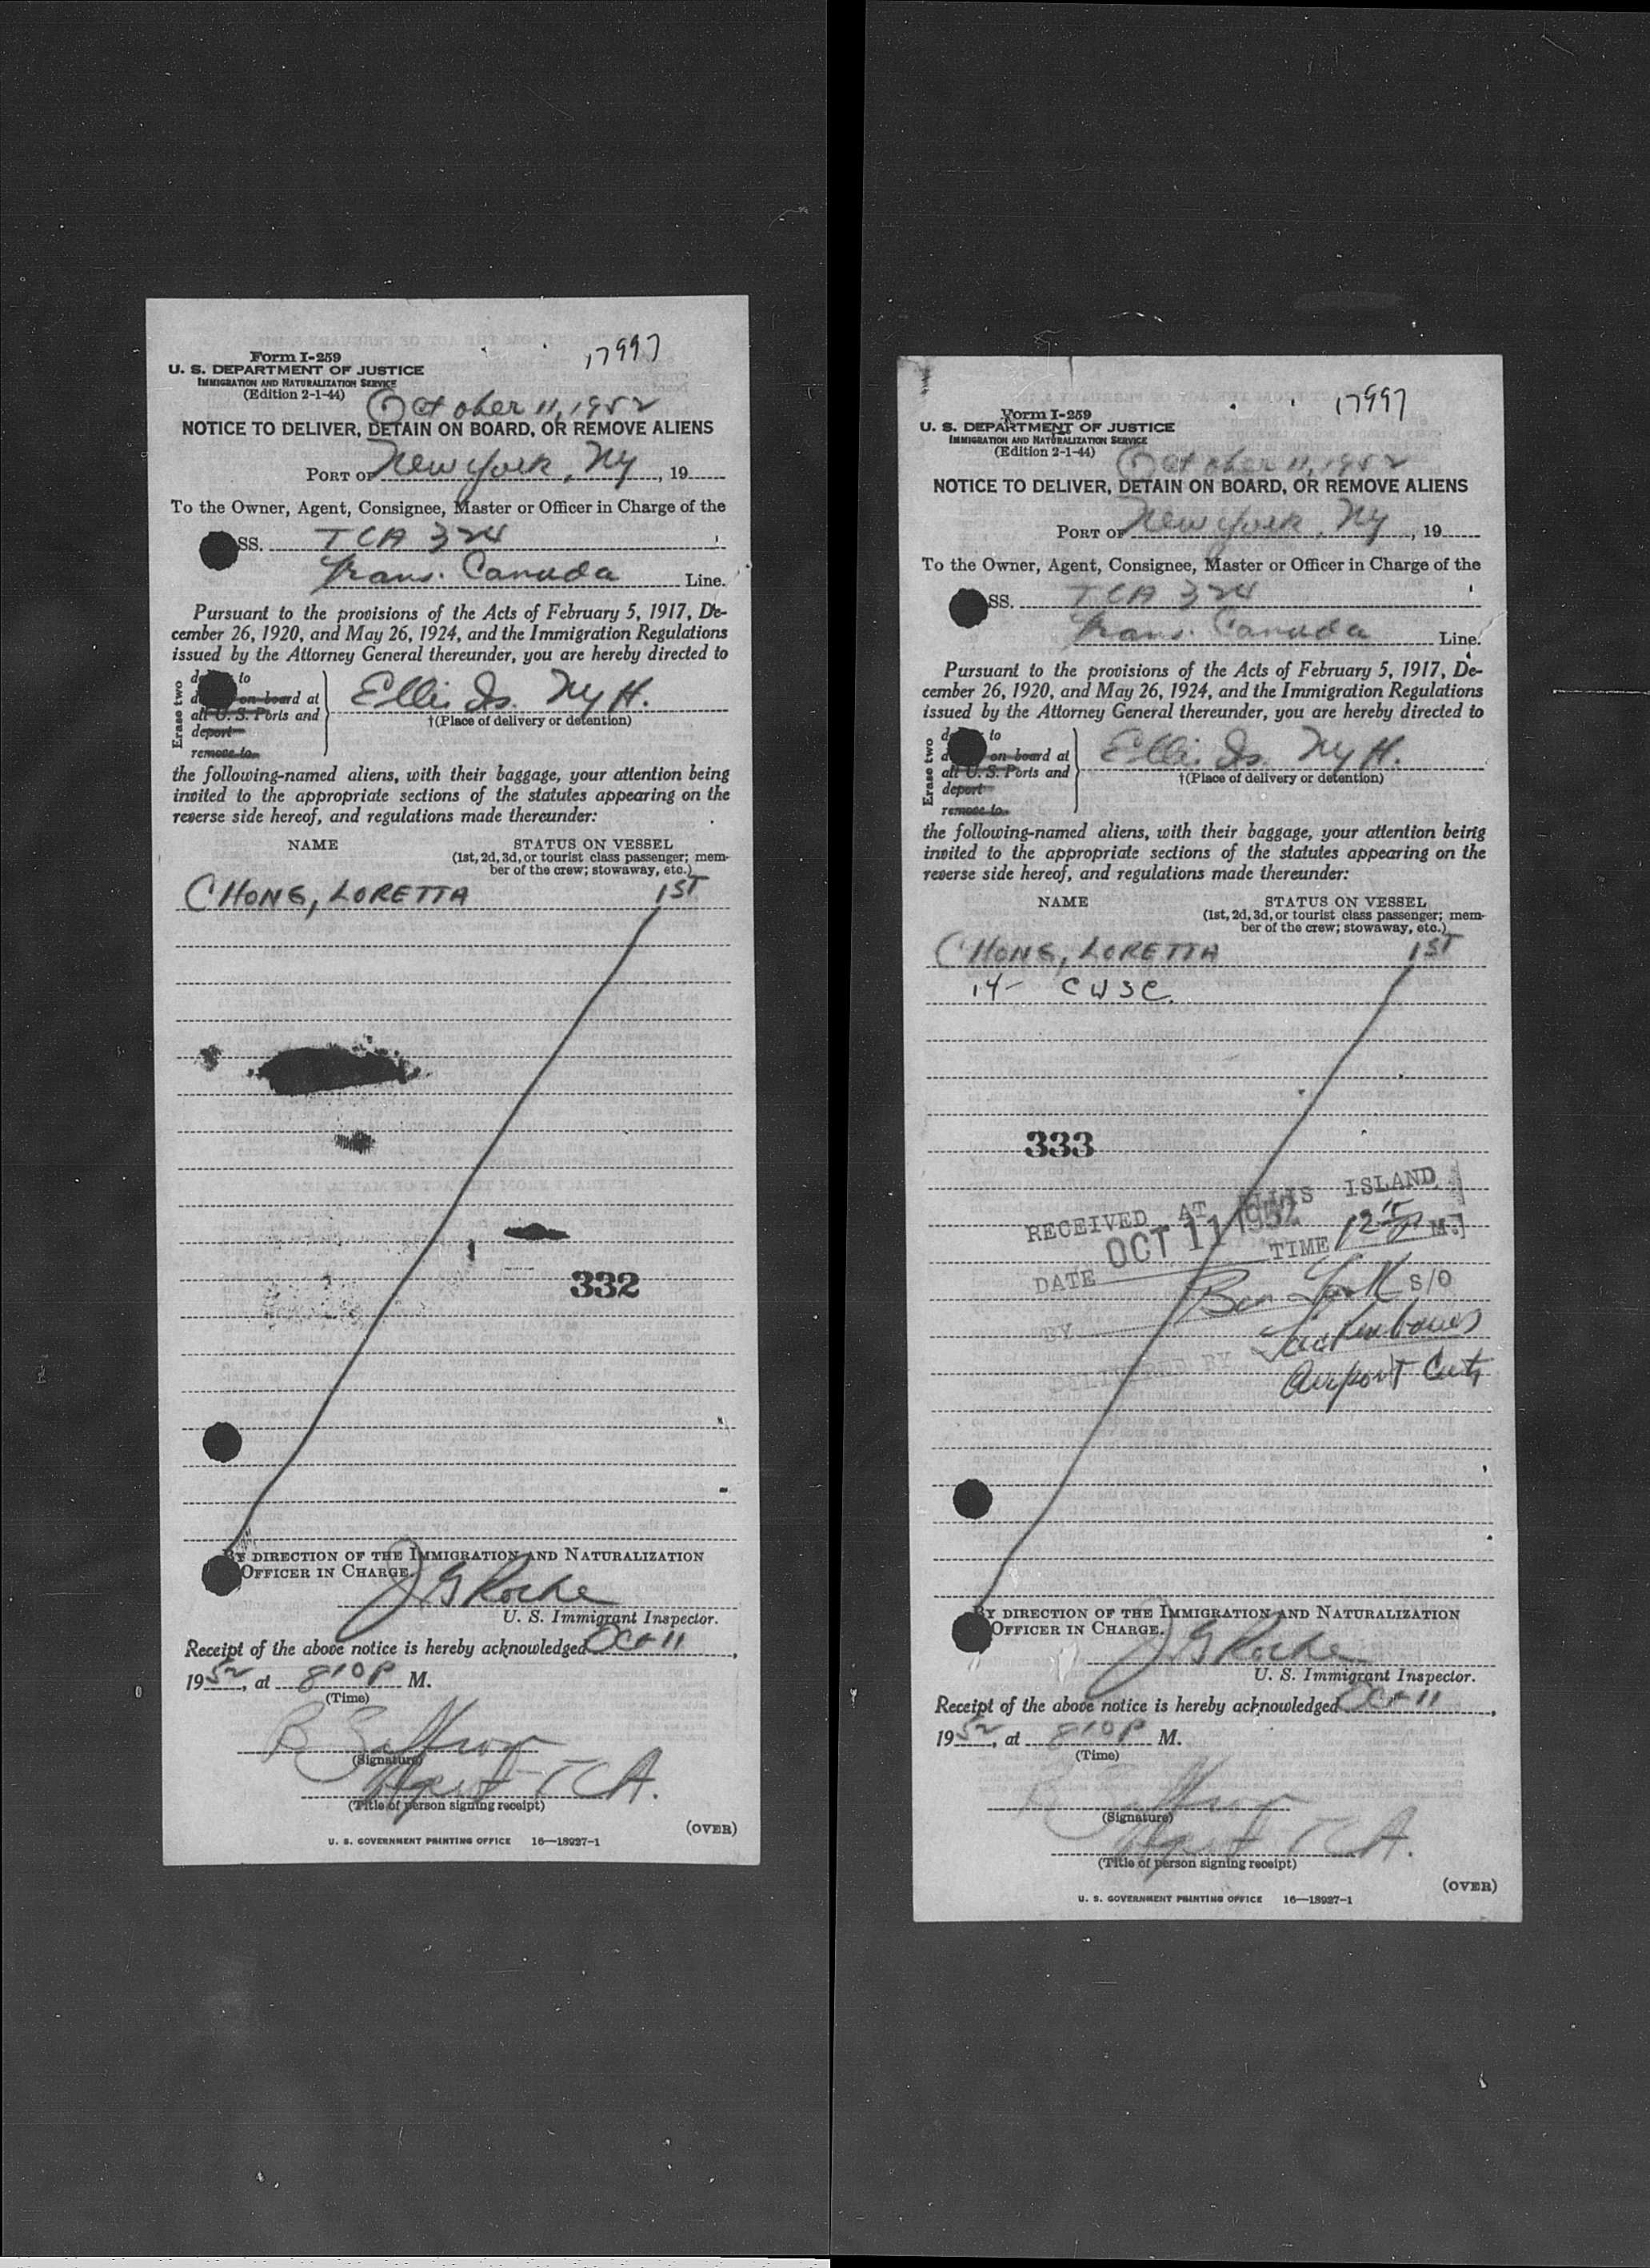 17997
Form I-259
U. S. DEPARTMENT OF JUSTICE
IMMIGRATION AND NATURALIZATION SERVICE
(Edition 2-1-44)
October 11, 1952
NOTICE TO DELIVER, DETAIN ON BOARD, OR REMOVE ALIENS
PORT OF New York, NY, 19
To the Owner, Agent, Consignee, Master or Officer in Charge of the
SS. TCA 324
Trans. Canada Line.
Pursuant to the provisions of the Acts of February 5, 1917, De-
cember 26, 1920, and May 26, 1924, and the Immigration Regulations
issued by the Attorney General thereunder, you are hereby directed to
Erase two
to
on board at
all U. S. Ports and
deport
remove to
Ellis Is. NYH.
†(Place of delivery or detention)
the following-named aliens, with their baggage, your attention being
invited to the appropriate sections of the statutes appearing on the
reverse side hereof, and regulations made thereunder:
NAME STATUS ON VESSEL
(1st, 2d, 3d, or tourist class passenger; mem-
ber of the crew; stowaway, etc.)
CHONG, LORETTA 1ST
332
BY DIRECTION OF THE IMMIGRATION AND NATURALIZATION
OFFICER IN CHARGE.
J G Roche
U. S. Immigrant Inspector.
Receipt of the above notice is hereby acknowledged Oct 11,
1952, at 810 P M.
(Time)
(Signature)
Agent TCA.
(Title of person signing receipt)
(OVER)
U. S. GOVERNMENT PRINTING OFFICE 16—18927-1
17997
Form I-259
U. S. DEPARTMENT OF JUSTICE
IMMIGRATION AND NATURALIZATION SERVICE
(Edition 2-1-44)
October 11, 1952
NOTICE TO DELIVER, DETAIN ON BOARD, OR REMOVE ALIENS
PORT OF New York, NY, 19
To the Owner, Agent, Consignee, Master or Officer in Charge of the
SS. TCA 324
Trans. Canada Line.
Pursuant to the provisions of the Acts of February 5, 1917, De-
cember 26, 1920, and May 26, 1924, and the Immigration Regulations
issued by the Attorney General thereunder, you are hereby directed to
Erase two
to
on board at
all U. S. Ports and
deport
remove to
Ellis Is. NYH.
†(Place of delivery or detention)
the following-named aliens, with their baggage, your attention being
invited to the appropriate sections of the statutes appearing on the
reverse side hereof, and regulations made thereunder:
NAME STATUS ON VESSEL
(1st, 2d, 3d, or tourist class passenger; mem-
ber of the crew; stowaway, etc.)
CHONG, LORETTA 1ST
14- CWSC.
333
RECEIVED AT ELLIS ISLAND
DATE OCT 11 1952 TIME M.
BY Ben S/O
DELIVERED BY
Airport
BY DIRECTION OF THE IMMIGRATION AND NATURALIZATION
OFFICER IN CHARGE.
J G Roche
U. S. Immigrant Inspector.
Receipt of the above notice is hereby acknowledged Oct 11,
1952, at 810 P M.
(Time)
(Signature)
Agent TCA.
(Title of person signing receipt)
(OVER)
U. S. GOVERNMENT PRINTING OFFICE 16—18927-1